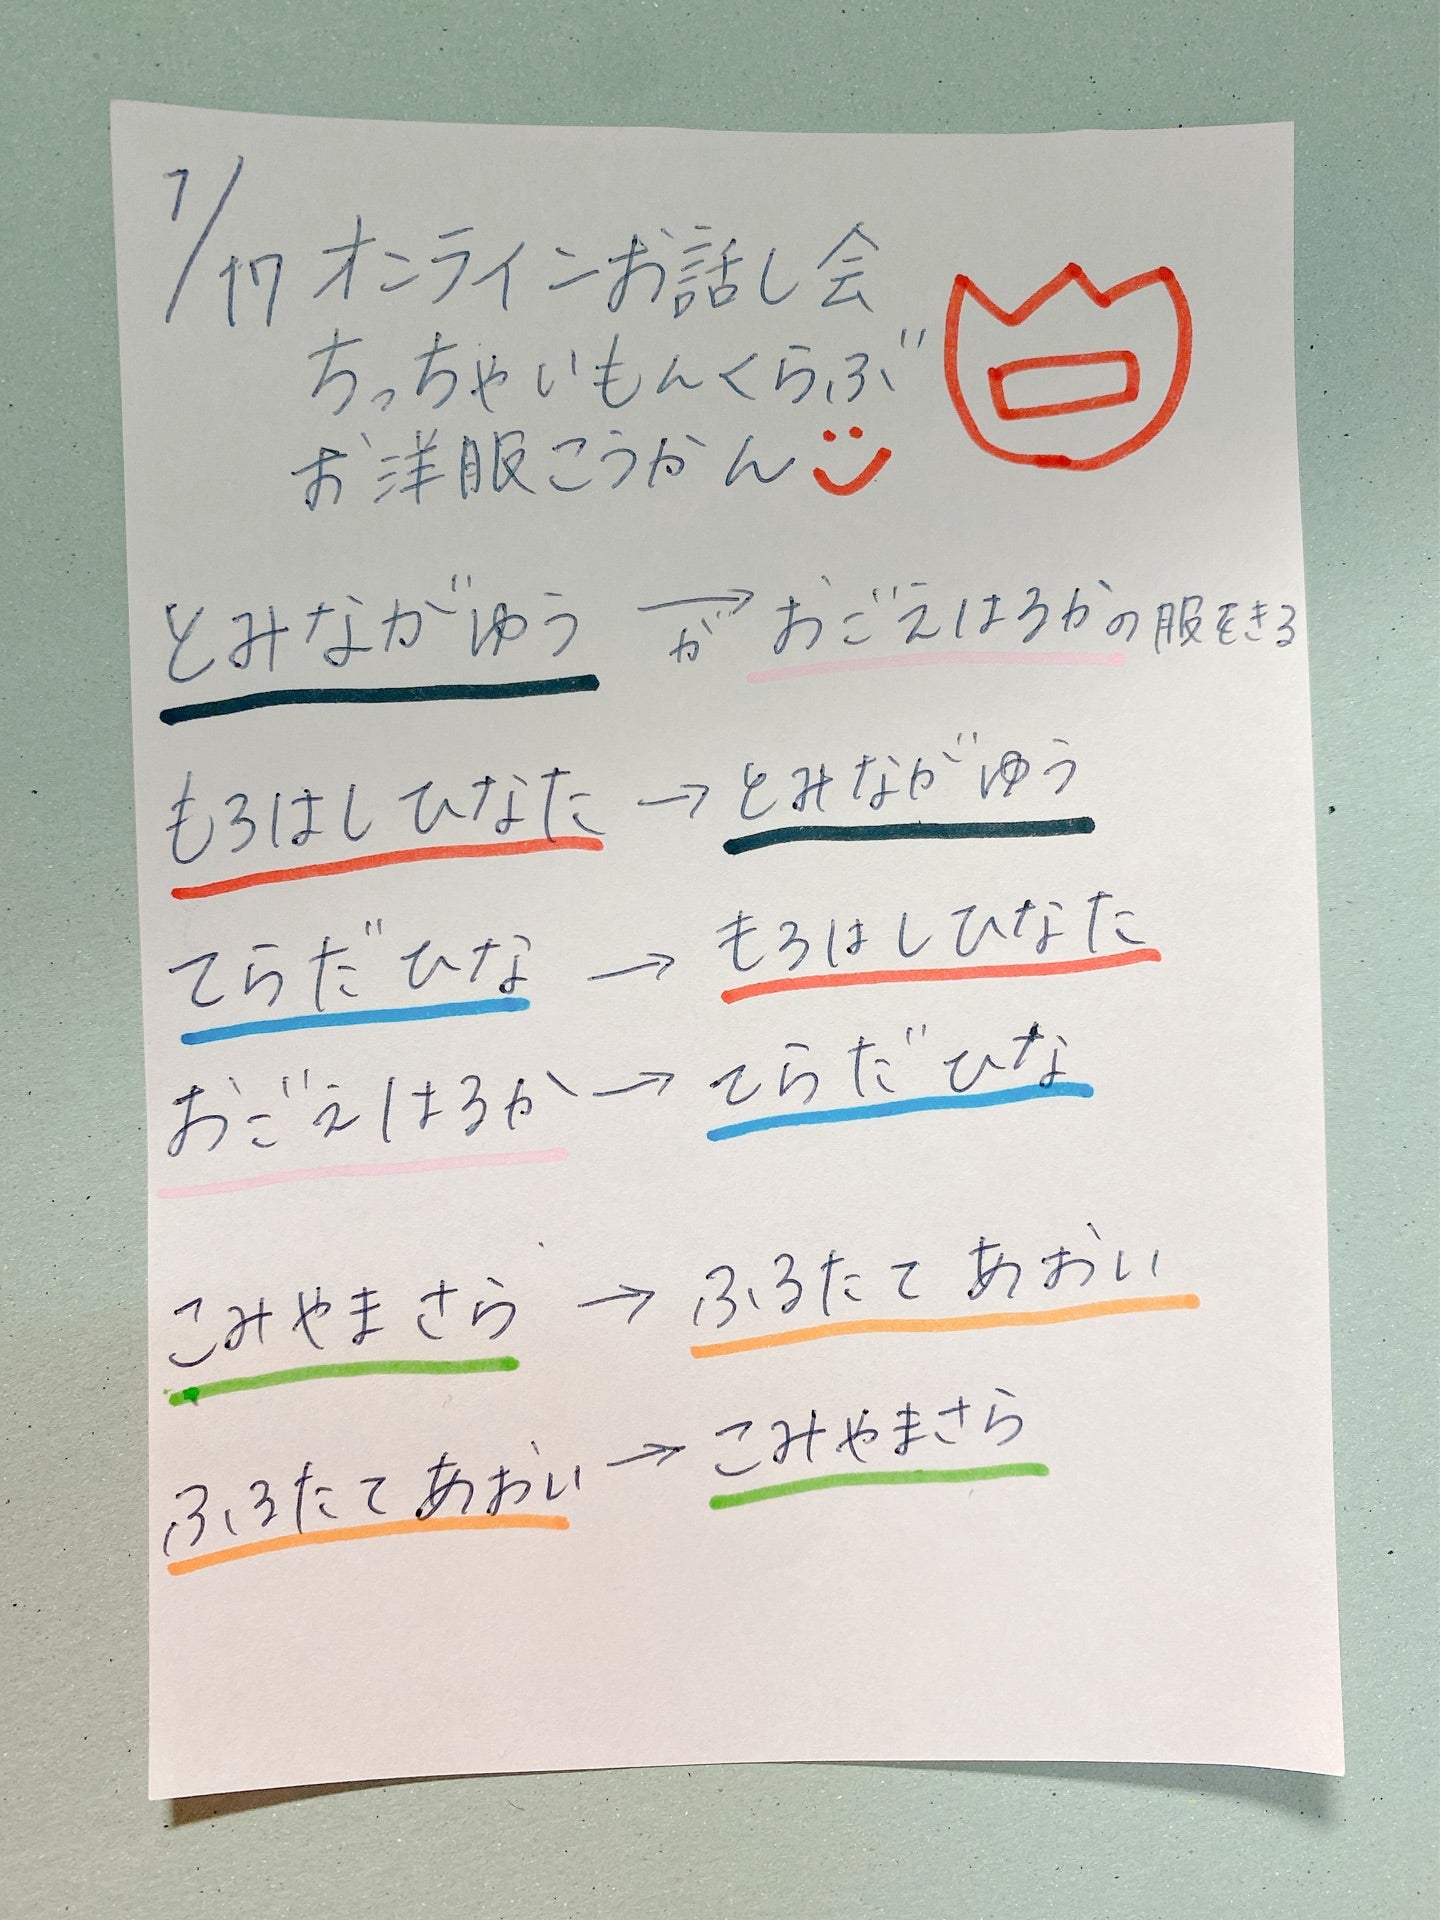 7/17 オンラインお話し会
ちっちゃいもんくらぶ
お洋服こうかん
とみながゆう → が おごえはるかの服をきる
もろはしひなた → とみながゆう
てらだひな → もろはしひなた
おごえはるか → てらだひな
こみやまさら → ふるたてあおい
ふるたてあおい → こみやまさら